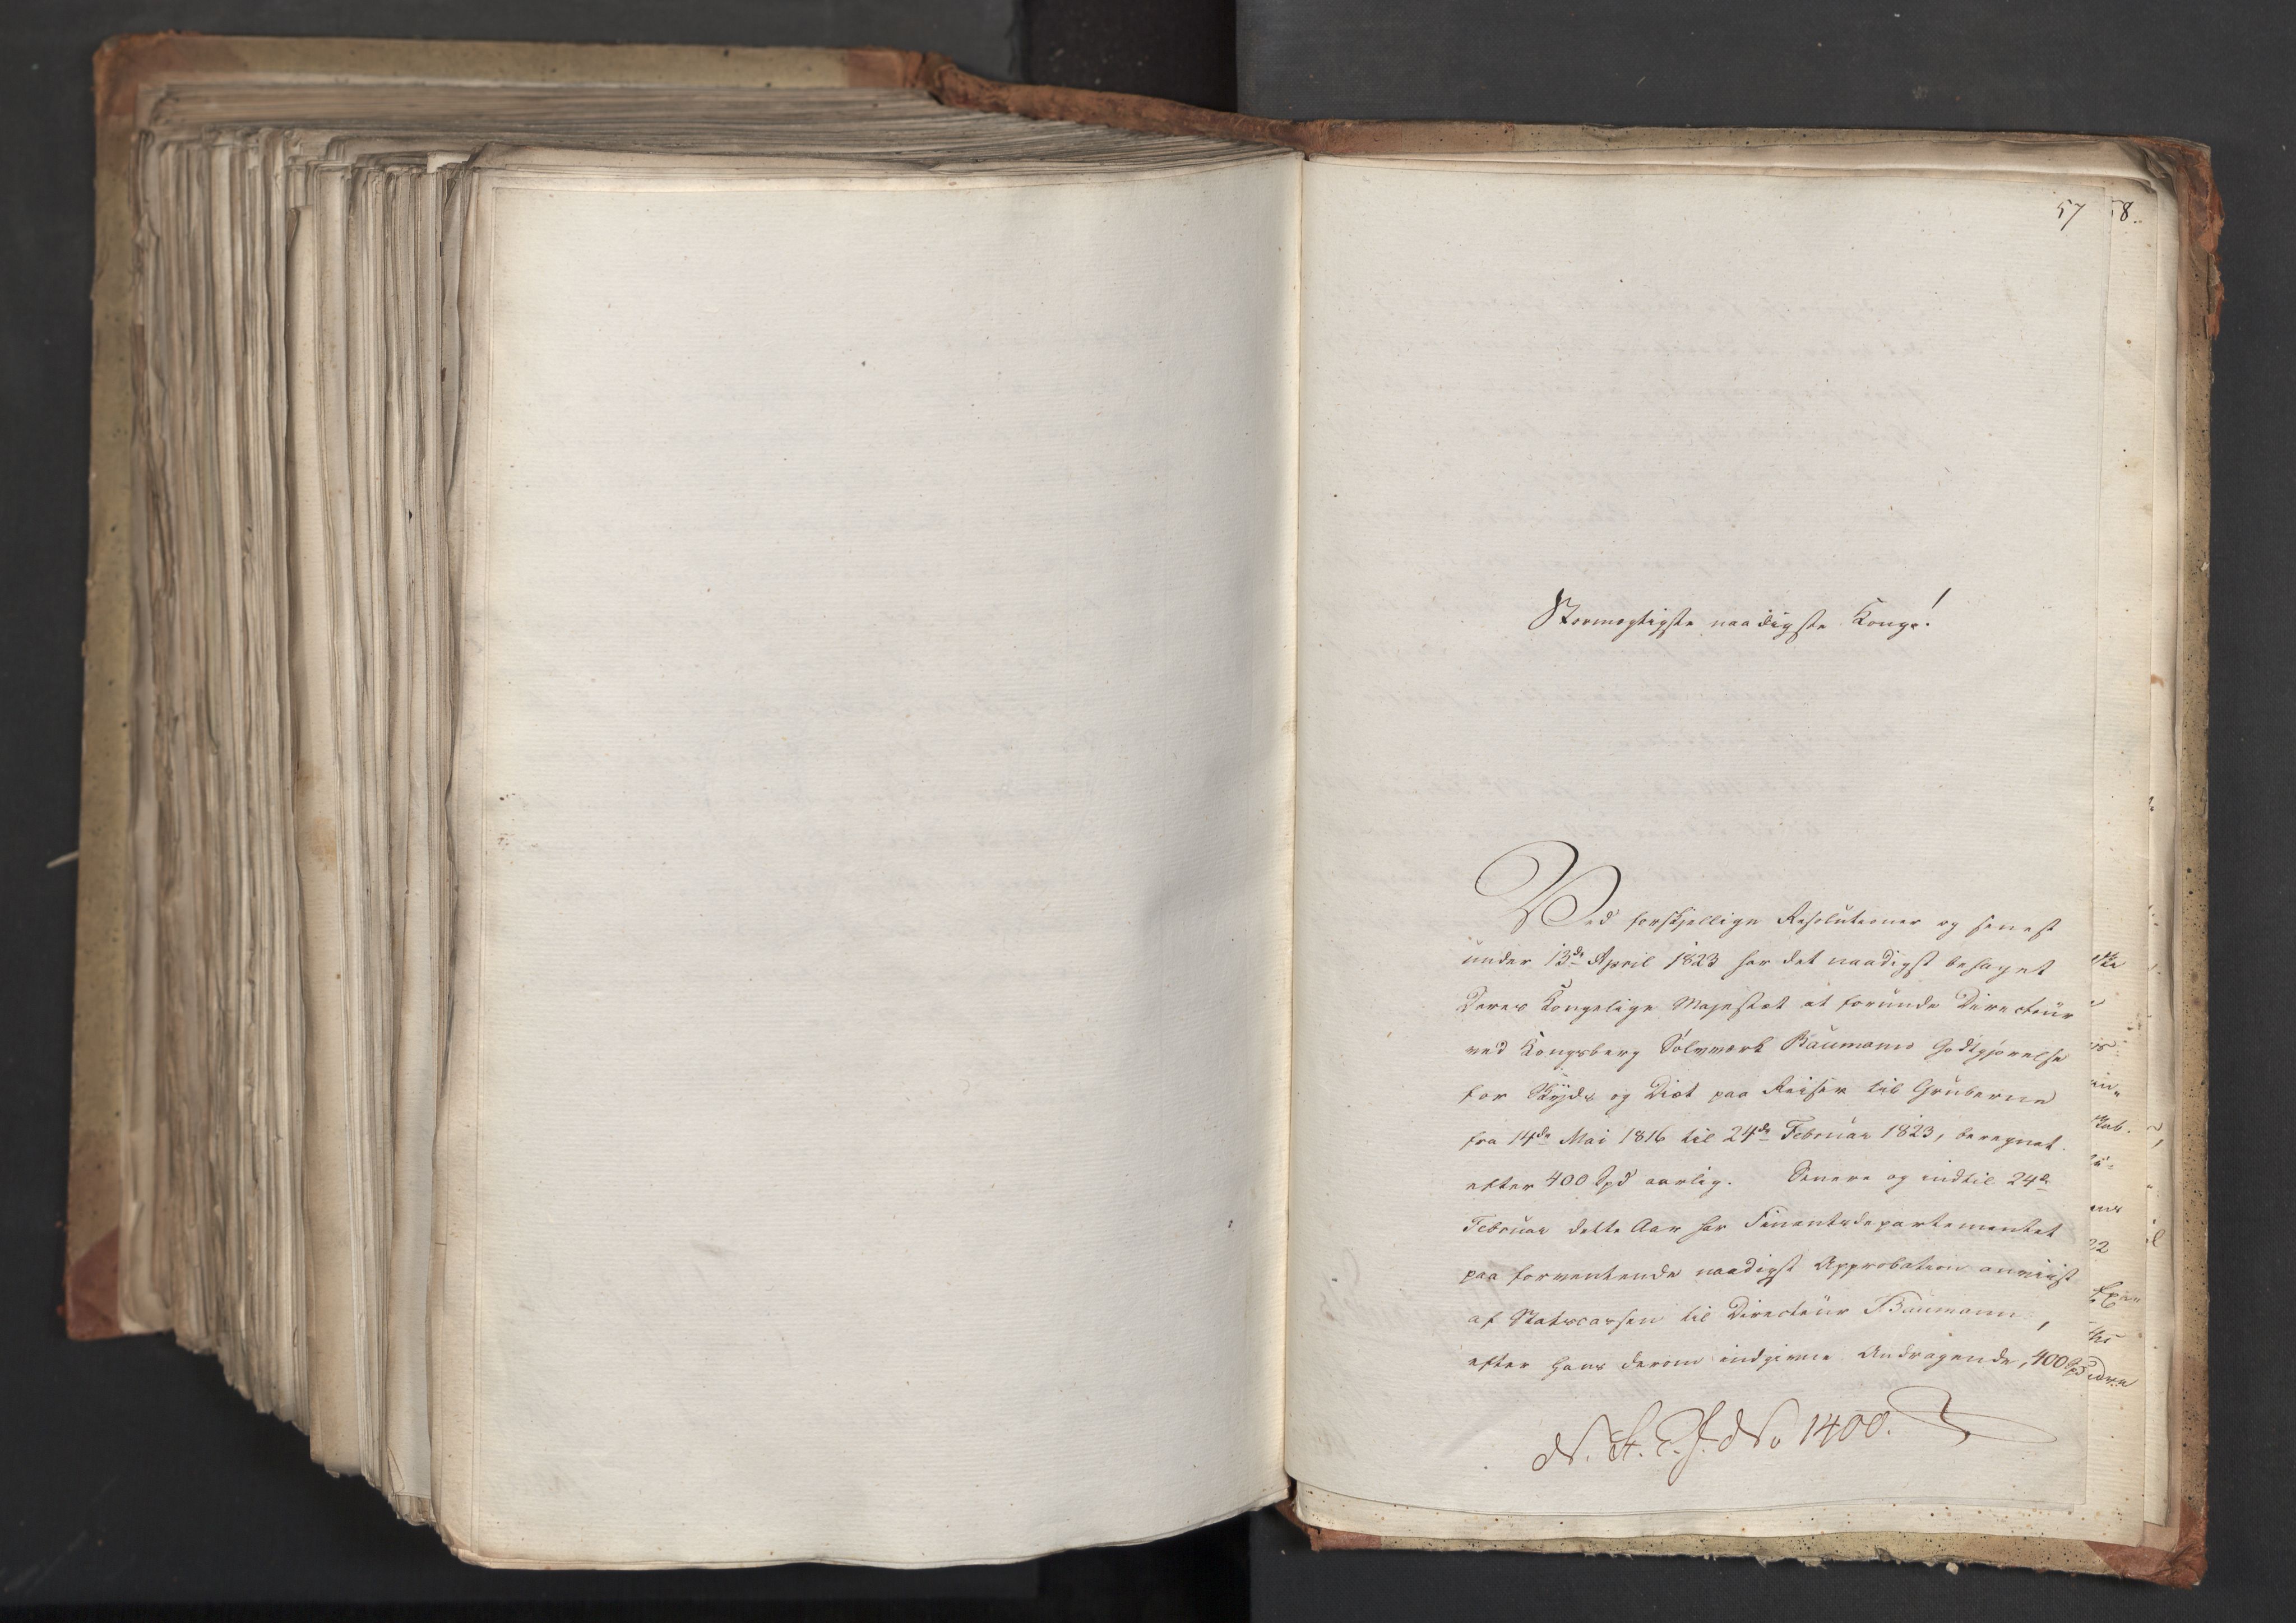 57
8.
Stormægtigste naadigste Konge!
Ved forskjellige Resolutioner og senest
under 13de April 1823 har det naadigst behaget
Deres Kongelige Majestæt at forunde Directeur
ved Kongsberg Sølvværk Baumann Godtgjørelse
for Skyds og Diæt paa Reiser til Gruberne
fra 14de Mai 1816 til 24de Februar 1823, beregnet
efter 400 Spd aarlig. Senere og indtil 24de
Februar dette Aar har Finantsdepartementet
paa forventende naadigst Approbation anviist
af Statscassen til Directeur Baumann,
efter hans derom indgivne Andragende, 400 Spd
N. St. E. J. No 1400.